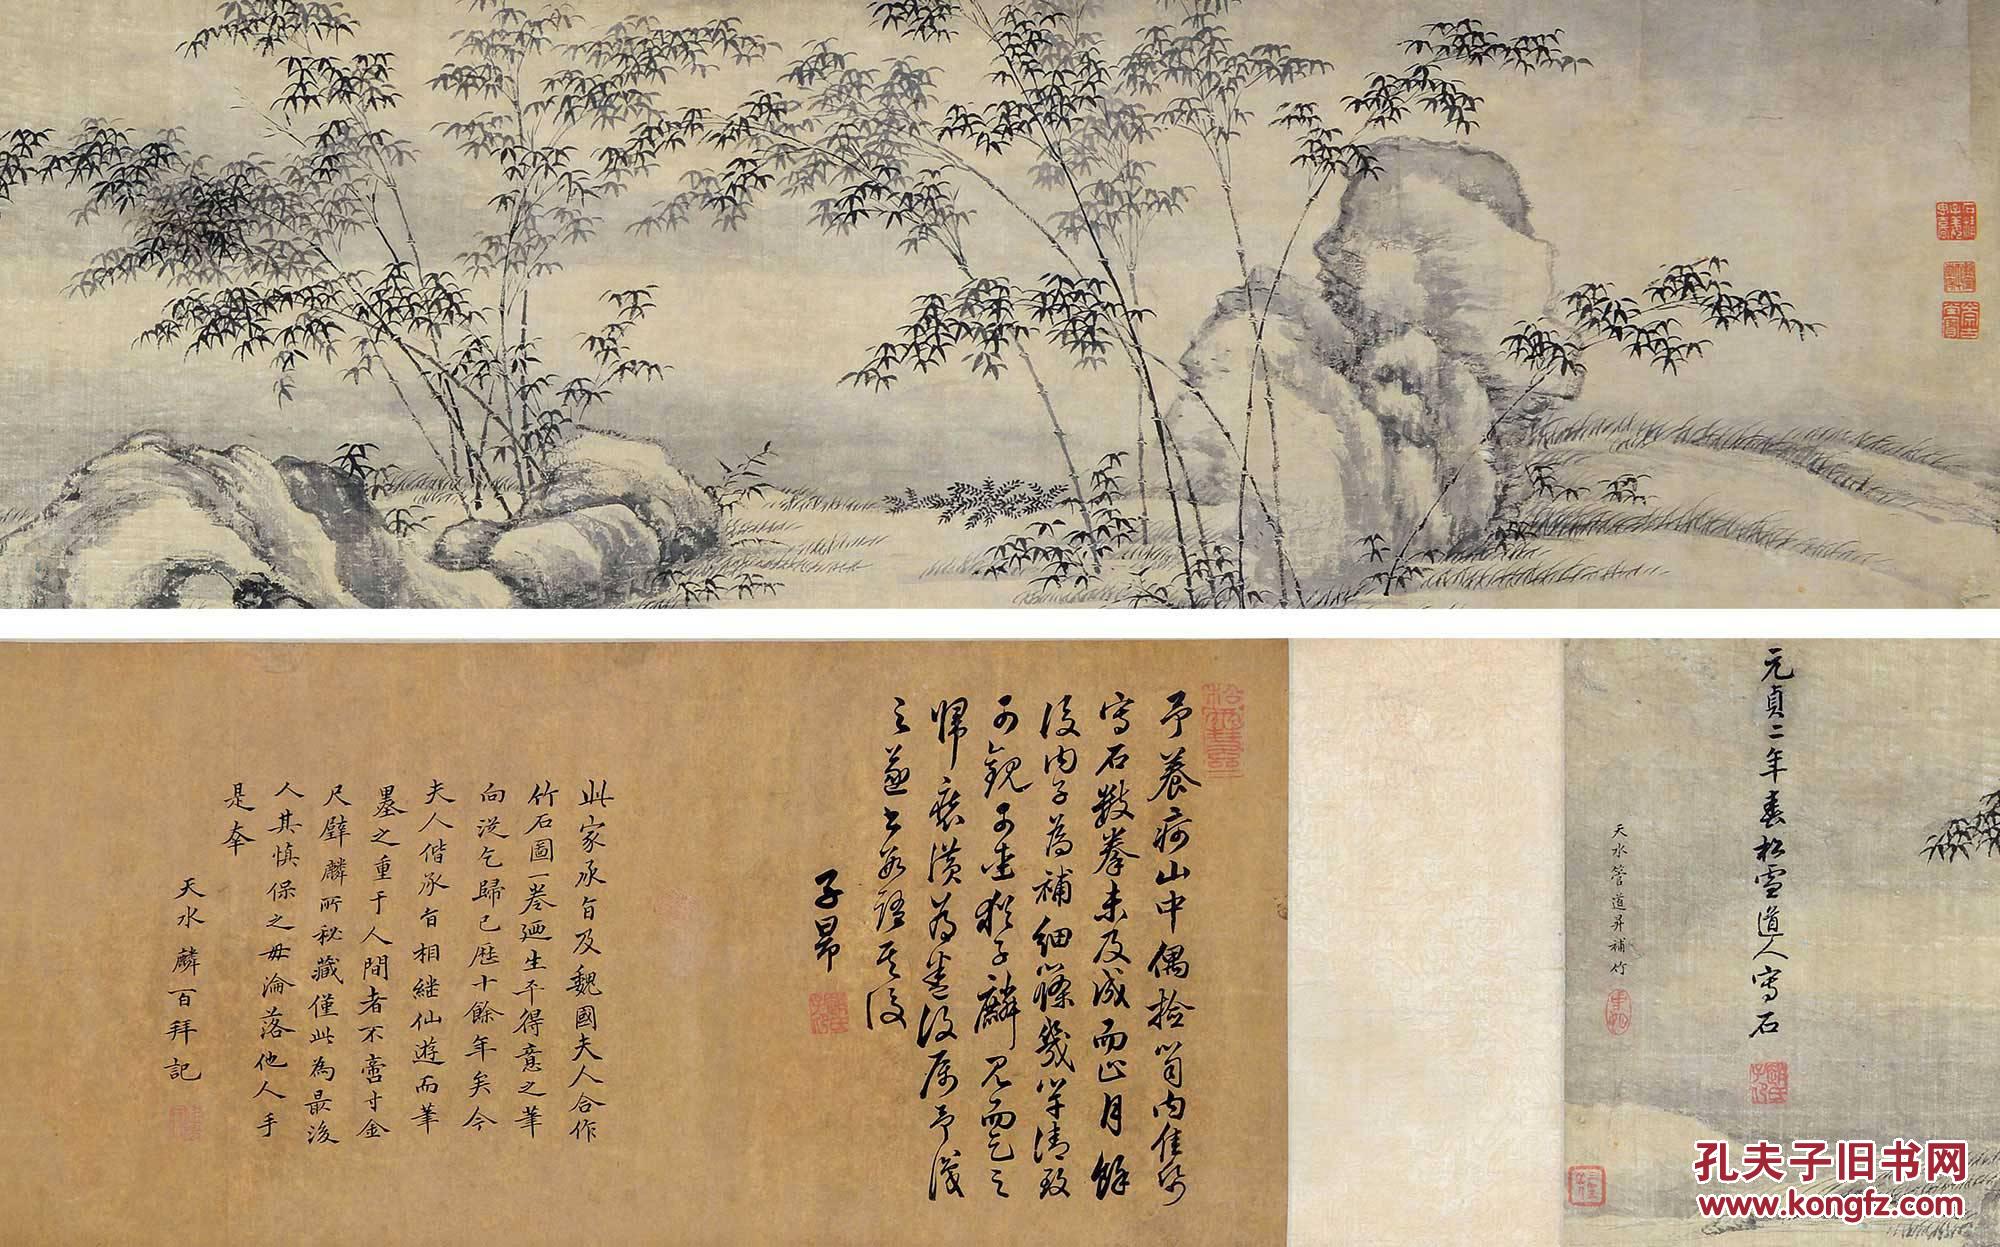 元貞二年春松雪道人寫石
天水管道昇補竹
予養疴山中偶撿笥內佳紙
寫石數拳未及成而止月餘
後內子為補細篠幾竿清致
可觀可坐猶子麟見而乞之
歸裝潢為卷後屬予識
之遂書數語於後
子昂
此家承旨及魏國夫人合作
竹石圖一卷迺生平得意之筆
向從乞歸已歷十餘年矣今
夫人偕承旨相繼仙遊而筆
墨之重于人間者不啻寸金
尺璧麟所秘藏僅此為最後
人其慎保之毋淪落他人手
是奉
天水麟百拜記
孔夫子旧书网
www.kongfz.com